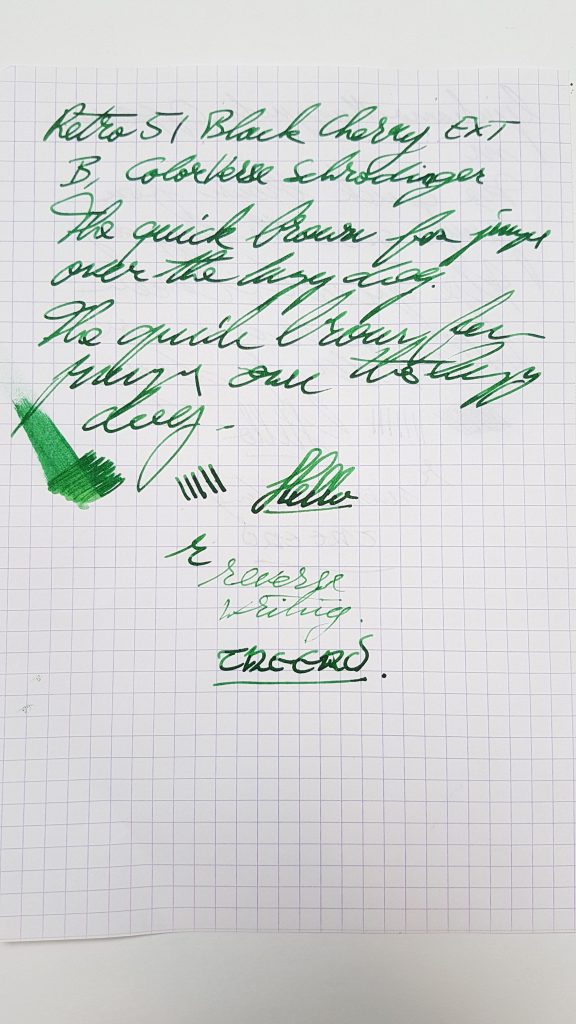 Retro 51 Black Cherry EXT
B, ColorVerse Schrodinger
The quick brown fox jumps
over the lazy dog.
The quick brown fox
jumps over the lazy
dog.
Hello
r reverse
writing.